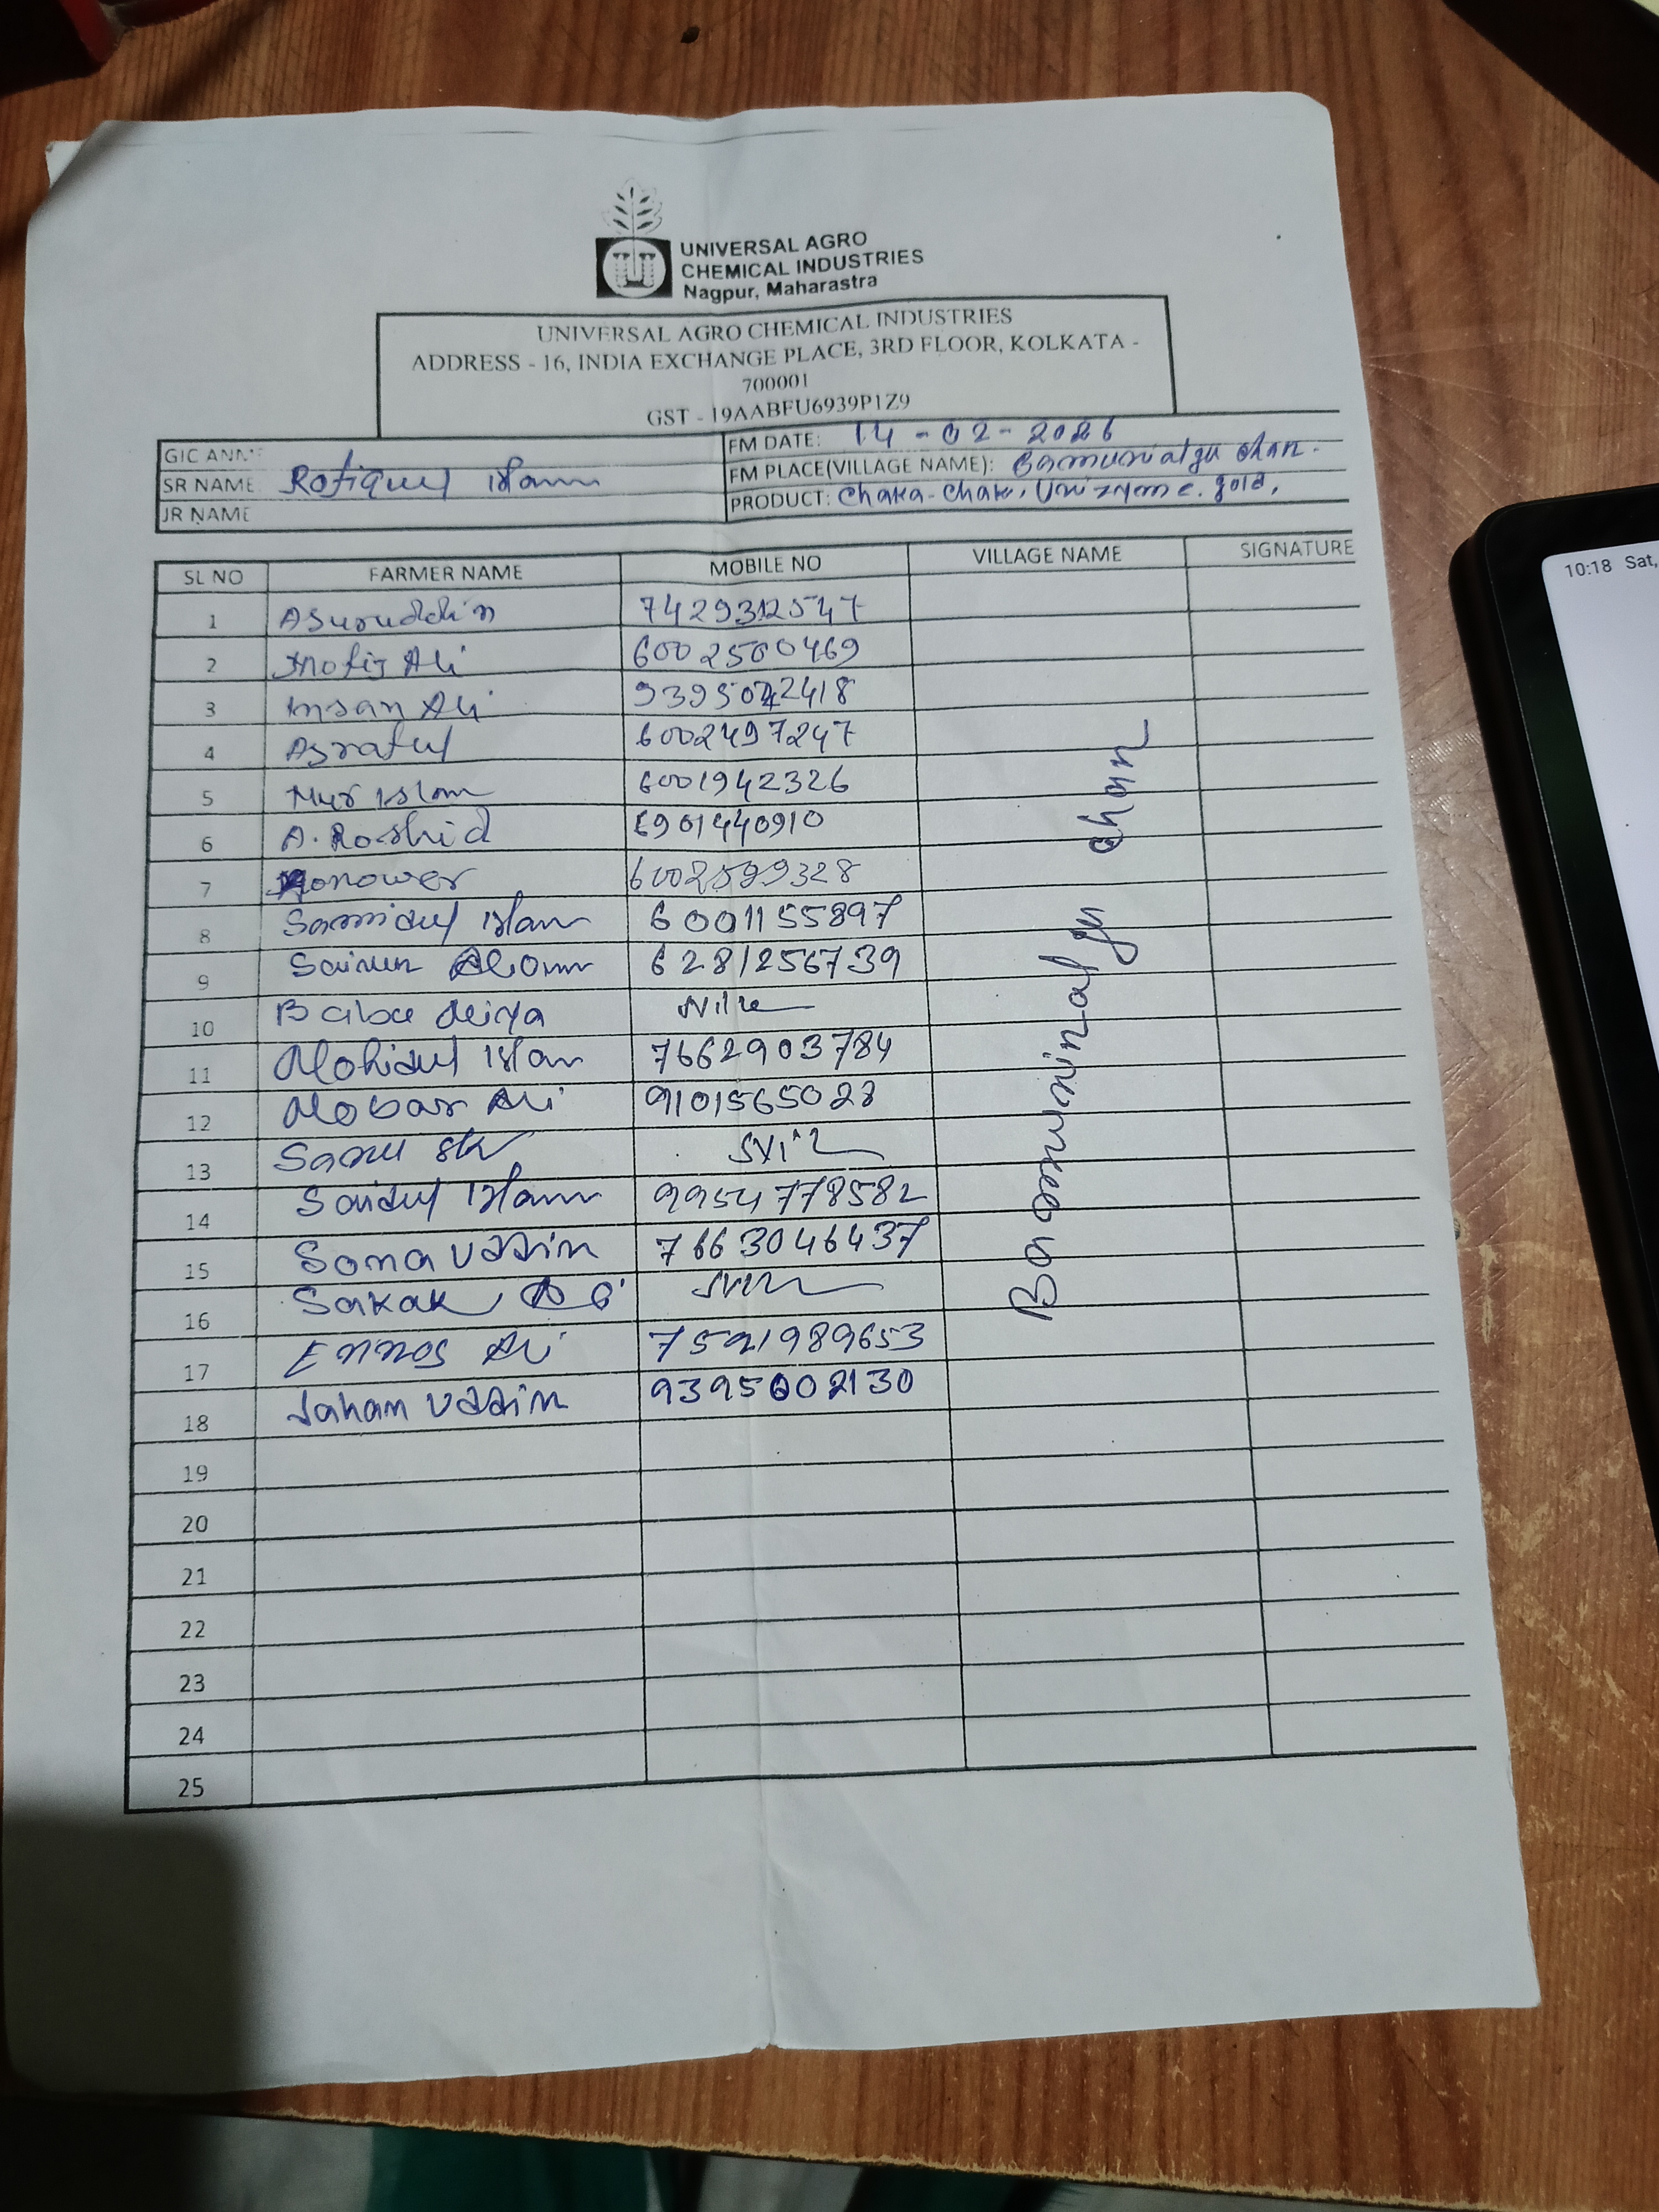 UNIVERSAL AGRO
CHEMICAL INDUSTRIES
Nagpur, Maharastra
UNIVERSAL AGRO CHEMICAL INDUSTRIES
ADDRESS - 16, INDIA EXCHANGE PLACE, 3RD FLOOR, KOLKATA -
700001
GST - 19AABFU6939P1Z9
FM DATE: 14-02-2026
SR NAME Rofiqul Islam FM PLACE(VILLAGE NAME):
JR NAME PRODUCT: Chaka-Chak, Unizyme gold,
SL NO FARMER NAME MOBILE NO VILLAGE NAME SIGNATURE
1 Asuruddin 7429312547
2 Ali 6002500469
3 Insan Ali
4 Asraful 6002497247
5 Nur Islam 6001942326
6 A. Roshid 6901440910
7
8 Samidul Islam 6001155897
9 Alom 6281256739
10 Babu
11 Mohidul Islam 7662903784
12 Mobar Ali
13 Sanu Sk
14 Saidul Islam 9954778582
15 Sona Uddin 7663046437
16
17 Ennos Ali
18 Jahan Uddin 9395602130
19
20
21
22
23
24
25
10:18 Sat,